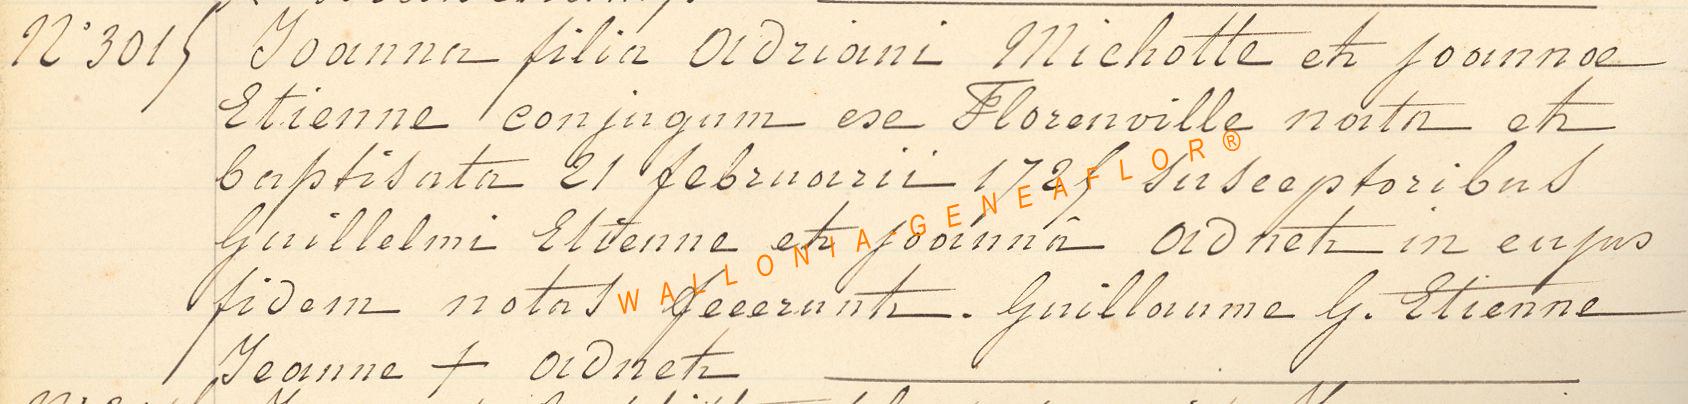 N° 3015 Joanna filia Adriani Michotte et Joannae
Etienne conjugum ese Florenville nata et
baptisata 21 februarii 172 susceptoribus
Guillelmi Etienne et Joannâ Adnet in cujus
fidem notas fecerunt. Guillaume G. Etienne
Jeanne + Adnet
WALLONIA-GENEAFLOR®